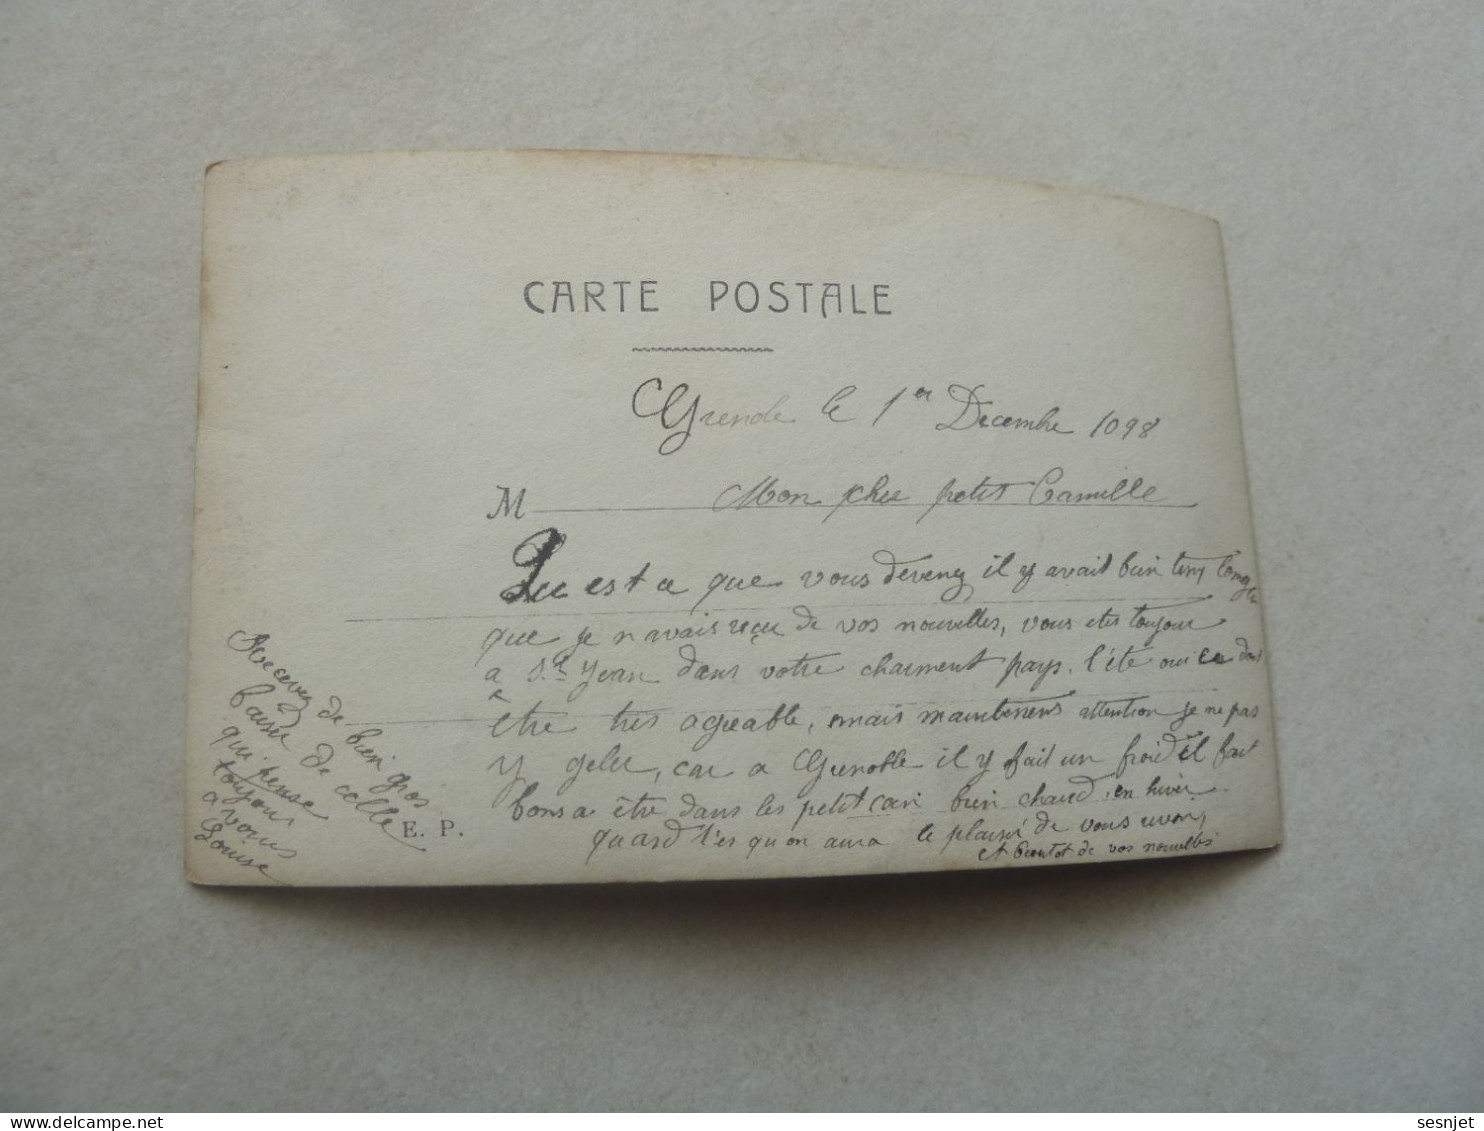 CARTE POSTALE
Grenole le 1er Decembre 1098
M Mon cher petit Camille
Qu est a que vous devenez il y avait bien tens longs
que je n avais reçu de vos nouvelles, vous etes toujour
a St Jean dans votre charment pays. l'été oui ca doit
être tres agreable, mais maintenens attention je ne pas
y geler, car a Grenoble il y fait un froid il fait
bons a être dans les petit coin bien chaud en hiver
quand l'es qu on aura le plaisir de vous uvoir,
et bientot de vos nouvelles
Recevez de bien gros
baiser de celle
qui pense
toujours
a vous
Louise
E. P.
sesnjet